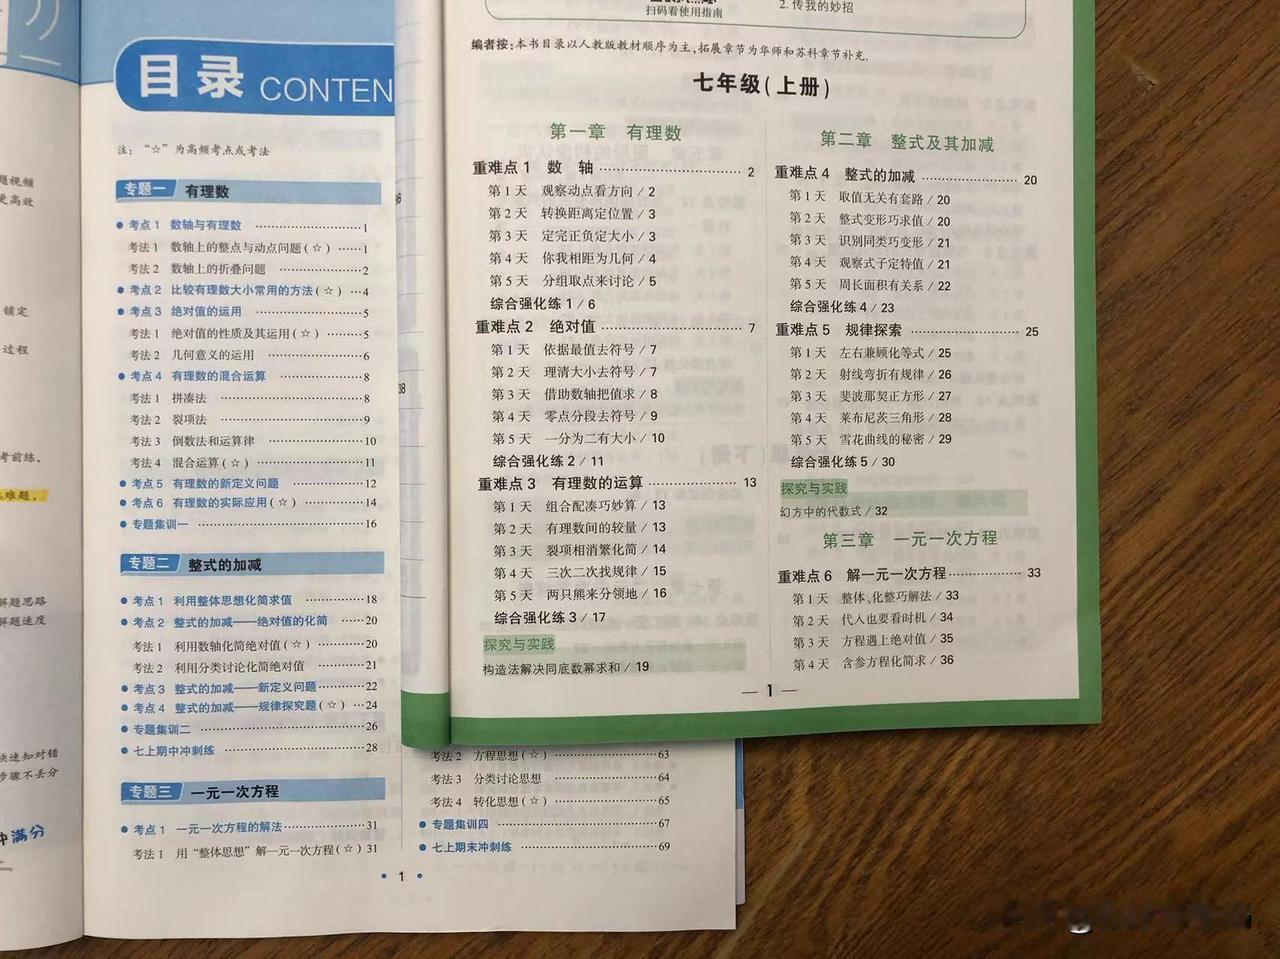 题视频
更高效
锁定
过程
考前练.
难题,
解题思路
解题速度
快速知对错
步骤不丢分
冲满分
目录 CONTEN
注：“☆”为高频考点或考法
专题一 有理数
考点1 数轴与有理数 1
考法1 数轴上的整点与动点问题(☆) 1
考法2 数轴上的折叠问题 2
考点2 比较有理数大小常用的方法(☆) 4
考点3 绝对值的运用 5
考法1 绝对值的性质及其运用(☆) 5
考法2 几何意义的运用 6
考点4 有理数的混合运算 8
考法1 拼凑法 8
考法2 裂项法 9
考法3 倒数法和运算律 10
考法4 混合运算(☆) 11
考点5 有理数的新定义问题 12
考点6 有理数的实际应用(☆) 14
专题集训一 16
专题二 整式的加减
考点1 利用整体思想化简求值 18
考点2 整式的加减——绝对值的化简 20
考法1 利用数轴化简绝对值(☆) 20
考法2 利用分类讨论化简绝对值 21
考点3 整式的加减——新定义问题 22
考点4 整式的加减——规律探究题(☆) 24
专题集训二 26
七上期中冲刺练 28
专题三 一元一次方程
考点1 一元一次方程的解法 31
考法1 用“整体思想”解一元一次方程(☆) 31
考法2 方程思想(☆) 63
考法3 分类讨论思想 64
考法4 转化思想(☆) 65
专题集训四 67
七上期末冲刺练 69
1
扫码看使用指南
2. 传我的妙招
编者按：本书目录以人教版教材顺序为主,拓展章节为华师和苏科章节补充.
七年级(上册)
第一章 有理数
重难点1 数 轴 2
第1天 观察动点看方向 / 2
第2天 转换距离定位置 / 3
第3天 定完正负定大小 / 3
第4天 你我相距为几何 / 4
第5天 分组取点来讨论 / 5
综合强化练1 / 6
重难点2 绝对值 7
第1天 依据最值去符号 / 7
第2天 理清大小去符号 / 7
第3天 借助数轴把值求 / 8
第4天 零点分段去符号 / 9
第5天 一分为二有大小 / 10
综合强化练2 / 11
重难点3 有理数的运算 13
第1天 组合配凑巧妙算 / 13
第2天 有理数间的较量 / 13
第3天 裂项相消繁化简 / 14
第4天 三次二次找规律 / 15
第5天 两只熊来分领地 / 16
综合强化练3 / 17
探究与实践
构造法解决同底数幂求和 / 19
第二章 整式及其加减
重难点4 整式的加减 20
第1天 取值无关有套路 / 20
第2天 整式变形巧求值 / 20
第3天 识别同类巧变形 / 21
第4天 观察式子定特值 / 21
第5天 周长面积有关系 / 22
综合强化练4 / 23
重难点5 规律探索 25
第1天 左右兼顾化等式 / 25
第2天 射线弯折有规律 / 26
第3天 斐波那契正方形 / 27
第4天 莱布尼茨三角形 / 28
第5天 雪花曲线的秘密 / 29
综合强化练5 / 30
探究与实践
幻方中的代数式 / 32
第三章 一元一次方程
重难点6 解一元一次方程 33
第1天 整体、化整巧解法 / 33
第2天 代人也要看时机 / 34
第3天 方程遇上绝对值 / 35
第4天 含参方程化简求 / 36
— 1 —